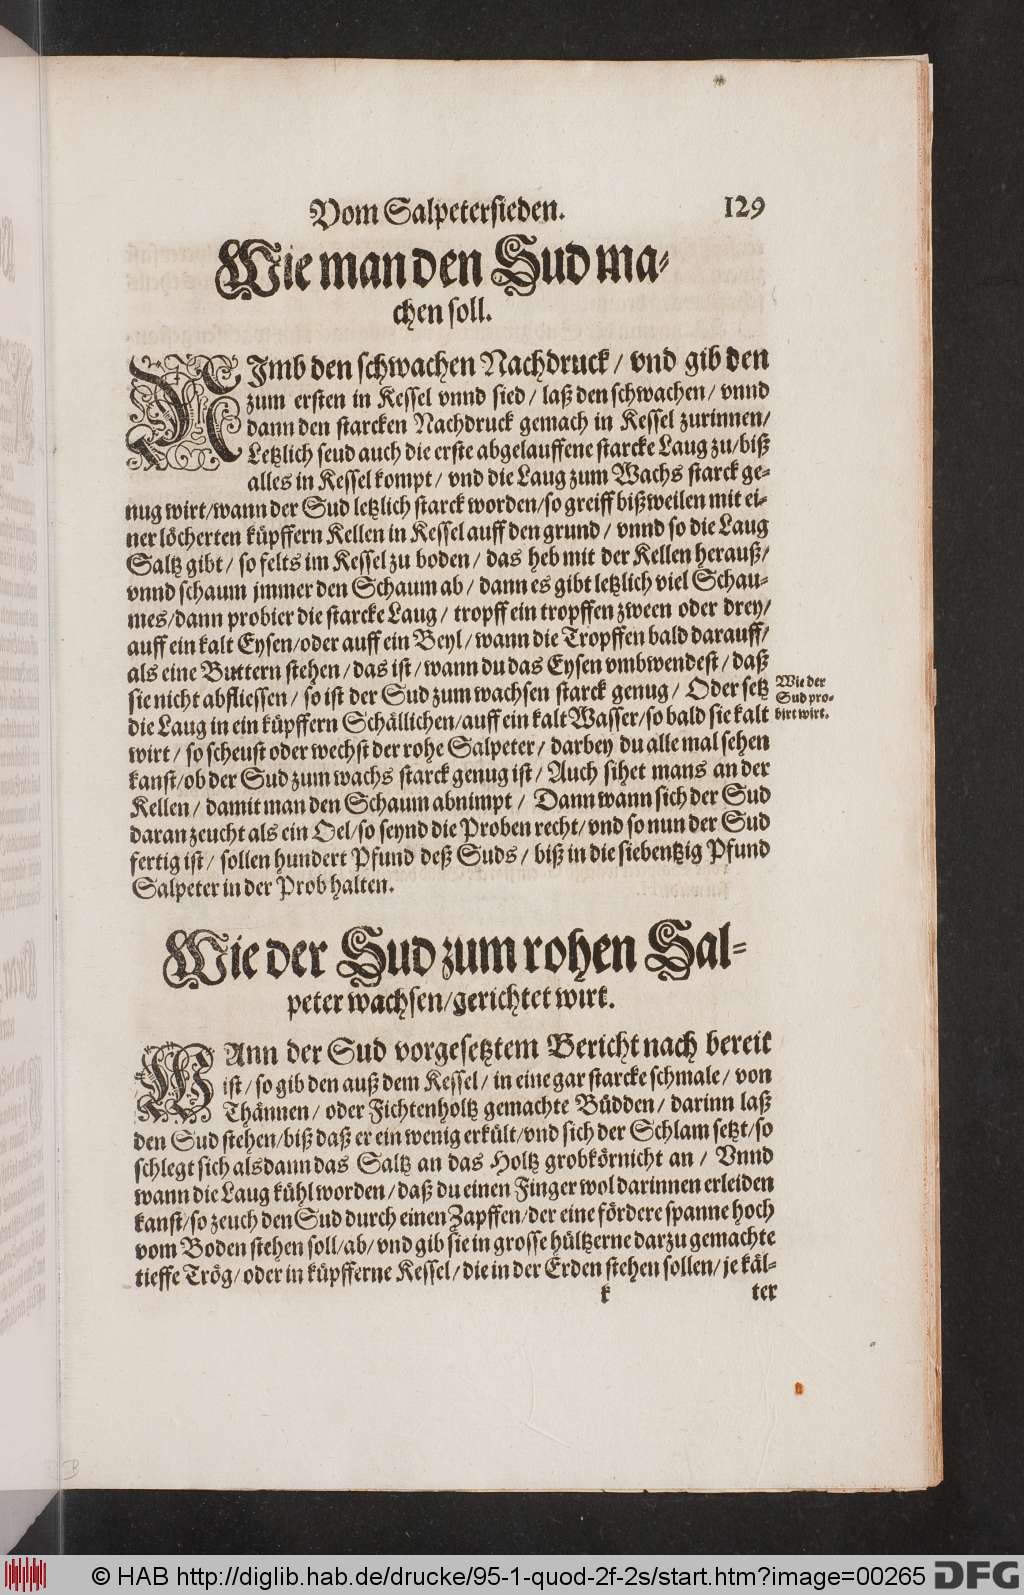 Vom Salpetersieden. 129
Wie man den Sud ma-
chen soll.
NImb den schwachen Nachdruck / vnd gib den
zum ersten in Kessel vnnd sied / laß den schwachen / vnnd
dann den starcken Nachdruck gemach in Kessel zurinnen /
Letzlich seud auch die erste abgelauffene starcke Laug zu / biß
alles in Kessel kompt / vnd die Laug zum Wachs starck ge-
nug wirt / wann der Sud letzlich starck worden / so greiff bißweilen mit ei-
ner löcherten küpffern Kellen in Kessel auff den grund / vnnd so die Laug
Saltz gibt / so felts im Kessel zu boden / das heb mit der Kellen herauß /
vnnd schaum jmmer den Schaum ab / dann es gibt letzlich viel Schau-
mes / dann probier die starcke Laug / tropff ein tropffen zween oder drey /
auff ein kalt Eysen / oder auff ein Beyl / wann die Tropffen bald darauff /
als eine Buttern stehen / das ist / wann du das Eysen vmbwendest / daß
sie nicht abfliessen / so ist der Sud zum wachsen starck genug / Oder setz
die Laug in ein küpffern Schällichen / auff ein kalt Wasser / so bald sie kalt
wirt / so scheust oder wechst der rohe Salpeter / darbey du alle mal sehen
kanst / ob der Sud zum wachs starck genug ist / Auch sihet mans an der
Kellen / damit man den Schaum abnimpt / Dann wann sich der Sud
daran zeucht als ein Oel / so seynd die Proben recht / vnd so nun der Sud
fertig ist / sollen hundert Pfund deß Suds / biß in die siebentzig Pfund
Salpeter in der Prob halten.
Wie der
Sud pro-
birt wirt.
Wie der Sud zum rohen Sal-
peter wachsen / gerichtet wirt.
WAnn der Sud vorgesetztem Bericht nach bereit
ist / so gib den auß dem Kessel / in eine gar starcke schmale / von
Thännen / oder Fichtenholtz gemachte Büdden / darinn laß
den Sud stehen / biß daß er ein wenig erkült / vnd sich der Schlam setzt / so
schlegt sich alsdann das Saltz an das Holtz grobkörnicht an / Vnnd
wann die Laug kühl worden / daß du einen Finger wol darinnen erleiden
kanst / so zeuch den Sud durch einen Zapffen / der eine fördere spanne hoch
vom Boden stehen soll / ab / vnd gib sie in grosse hültzerne darzu gemachte
tieffe Trög / oder in küpfferne Kessel / die in der Erden stehen sollen / je käl-
k ter
© HAB http://diglib.hab.de/drucke/95-1-quod-2f-2s/start.htm?image=00265 DFG